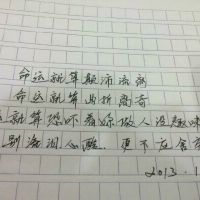 命运就算颠沛流离
命运就算曲折离奇
运就算恐吓着你做人没趣味
别流泪心酸．更不应舍弃
2013.1